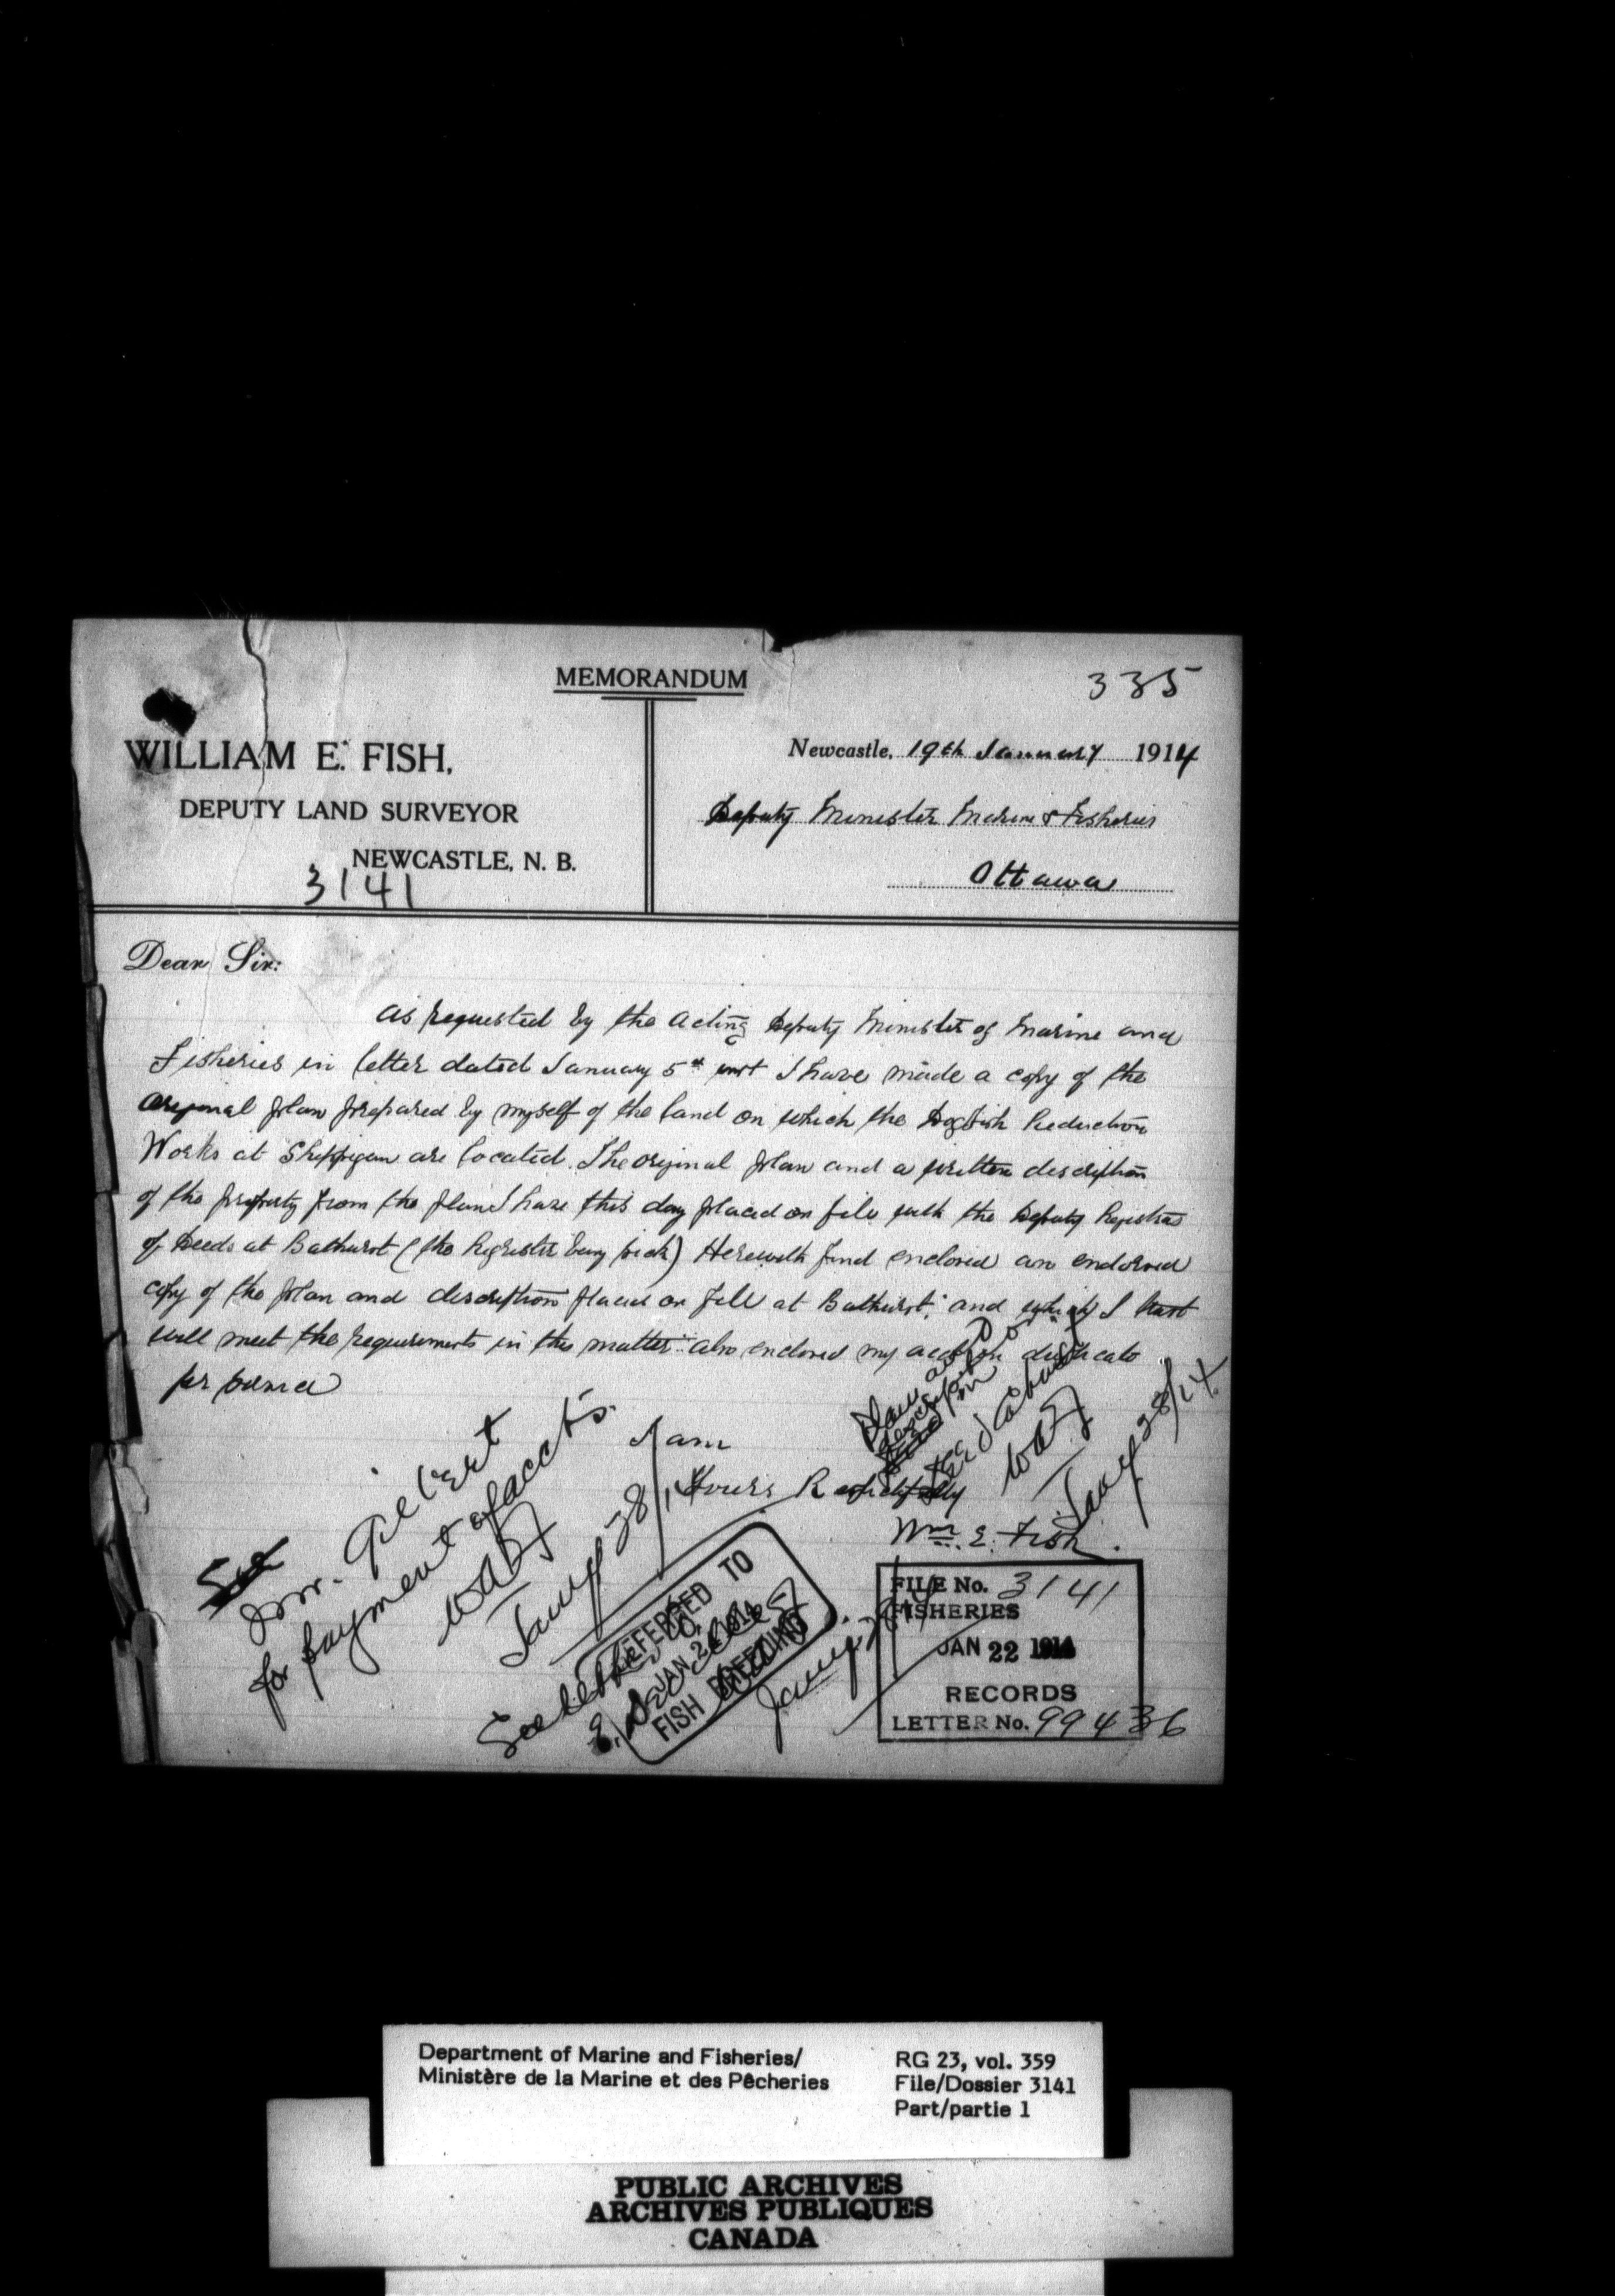 MEMORANDUM
335
WILLIAM E. FISH,
DEPUTY LAND SURVEYOR
NEWCASTLE, N. B.
3141
Newcastle, 19th January 1914
Deputy Minister Marine & Fisheries
Ottawa
Dear Sir:
As requested by the Acting Deputy Minister of Marine and
Fisheries in letter dated January 5th inst I have made a copy of the
original plan prepared by myself of the land on which the Dogfish Reduction
Works at Shippigan are located. The original plan and a written description
of the property from the plan I have this day placed on file with the Deputy Registrar
of Deeds at Bathurst (the Register being sick) Herewith find enclosed an endorsed
copy of the plan and description placed on file at Bathurst, and which I trust
will meet the requirements in this matter also enclosed my acct in duplicate
for same
I am
Yours Respectfully
Wm. E. Fish.
Mr. Gilbert
for payment of accts.
Jany 28/14
Plan and
description
Jany 28/14
REFERRED TO
JAN 24 1914
FISH BREEDING
See letter to
FILE No. 3141
FISHERIES
JAN 22 1914
RECORDS
LETTER No. 99436
Department of Marine and Fisheries/
Ministère de la Marine et des Pêcheries
RG 23, vol. 359
File/Dossier 3141
Part/partie 1
PUBLIC ARCHIVES
ARCHIVES PUBLIQUES
CANADA